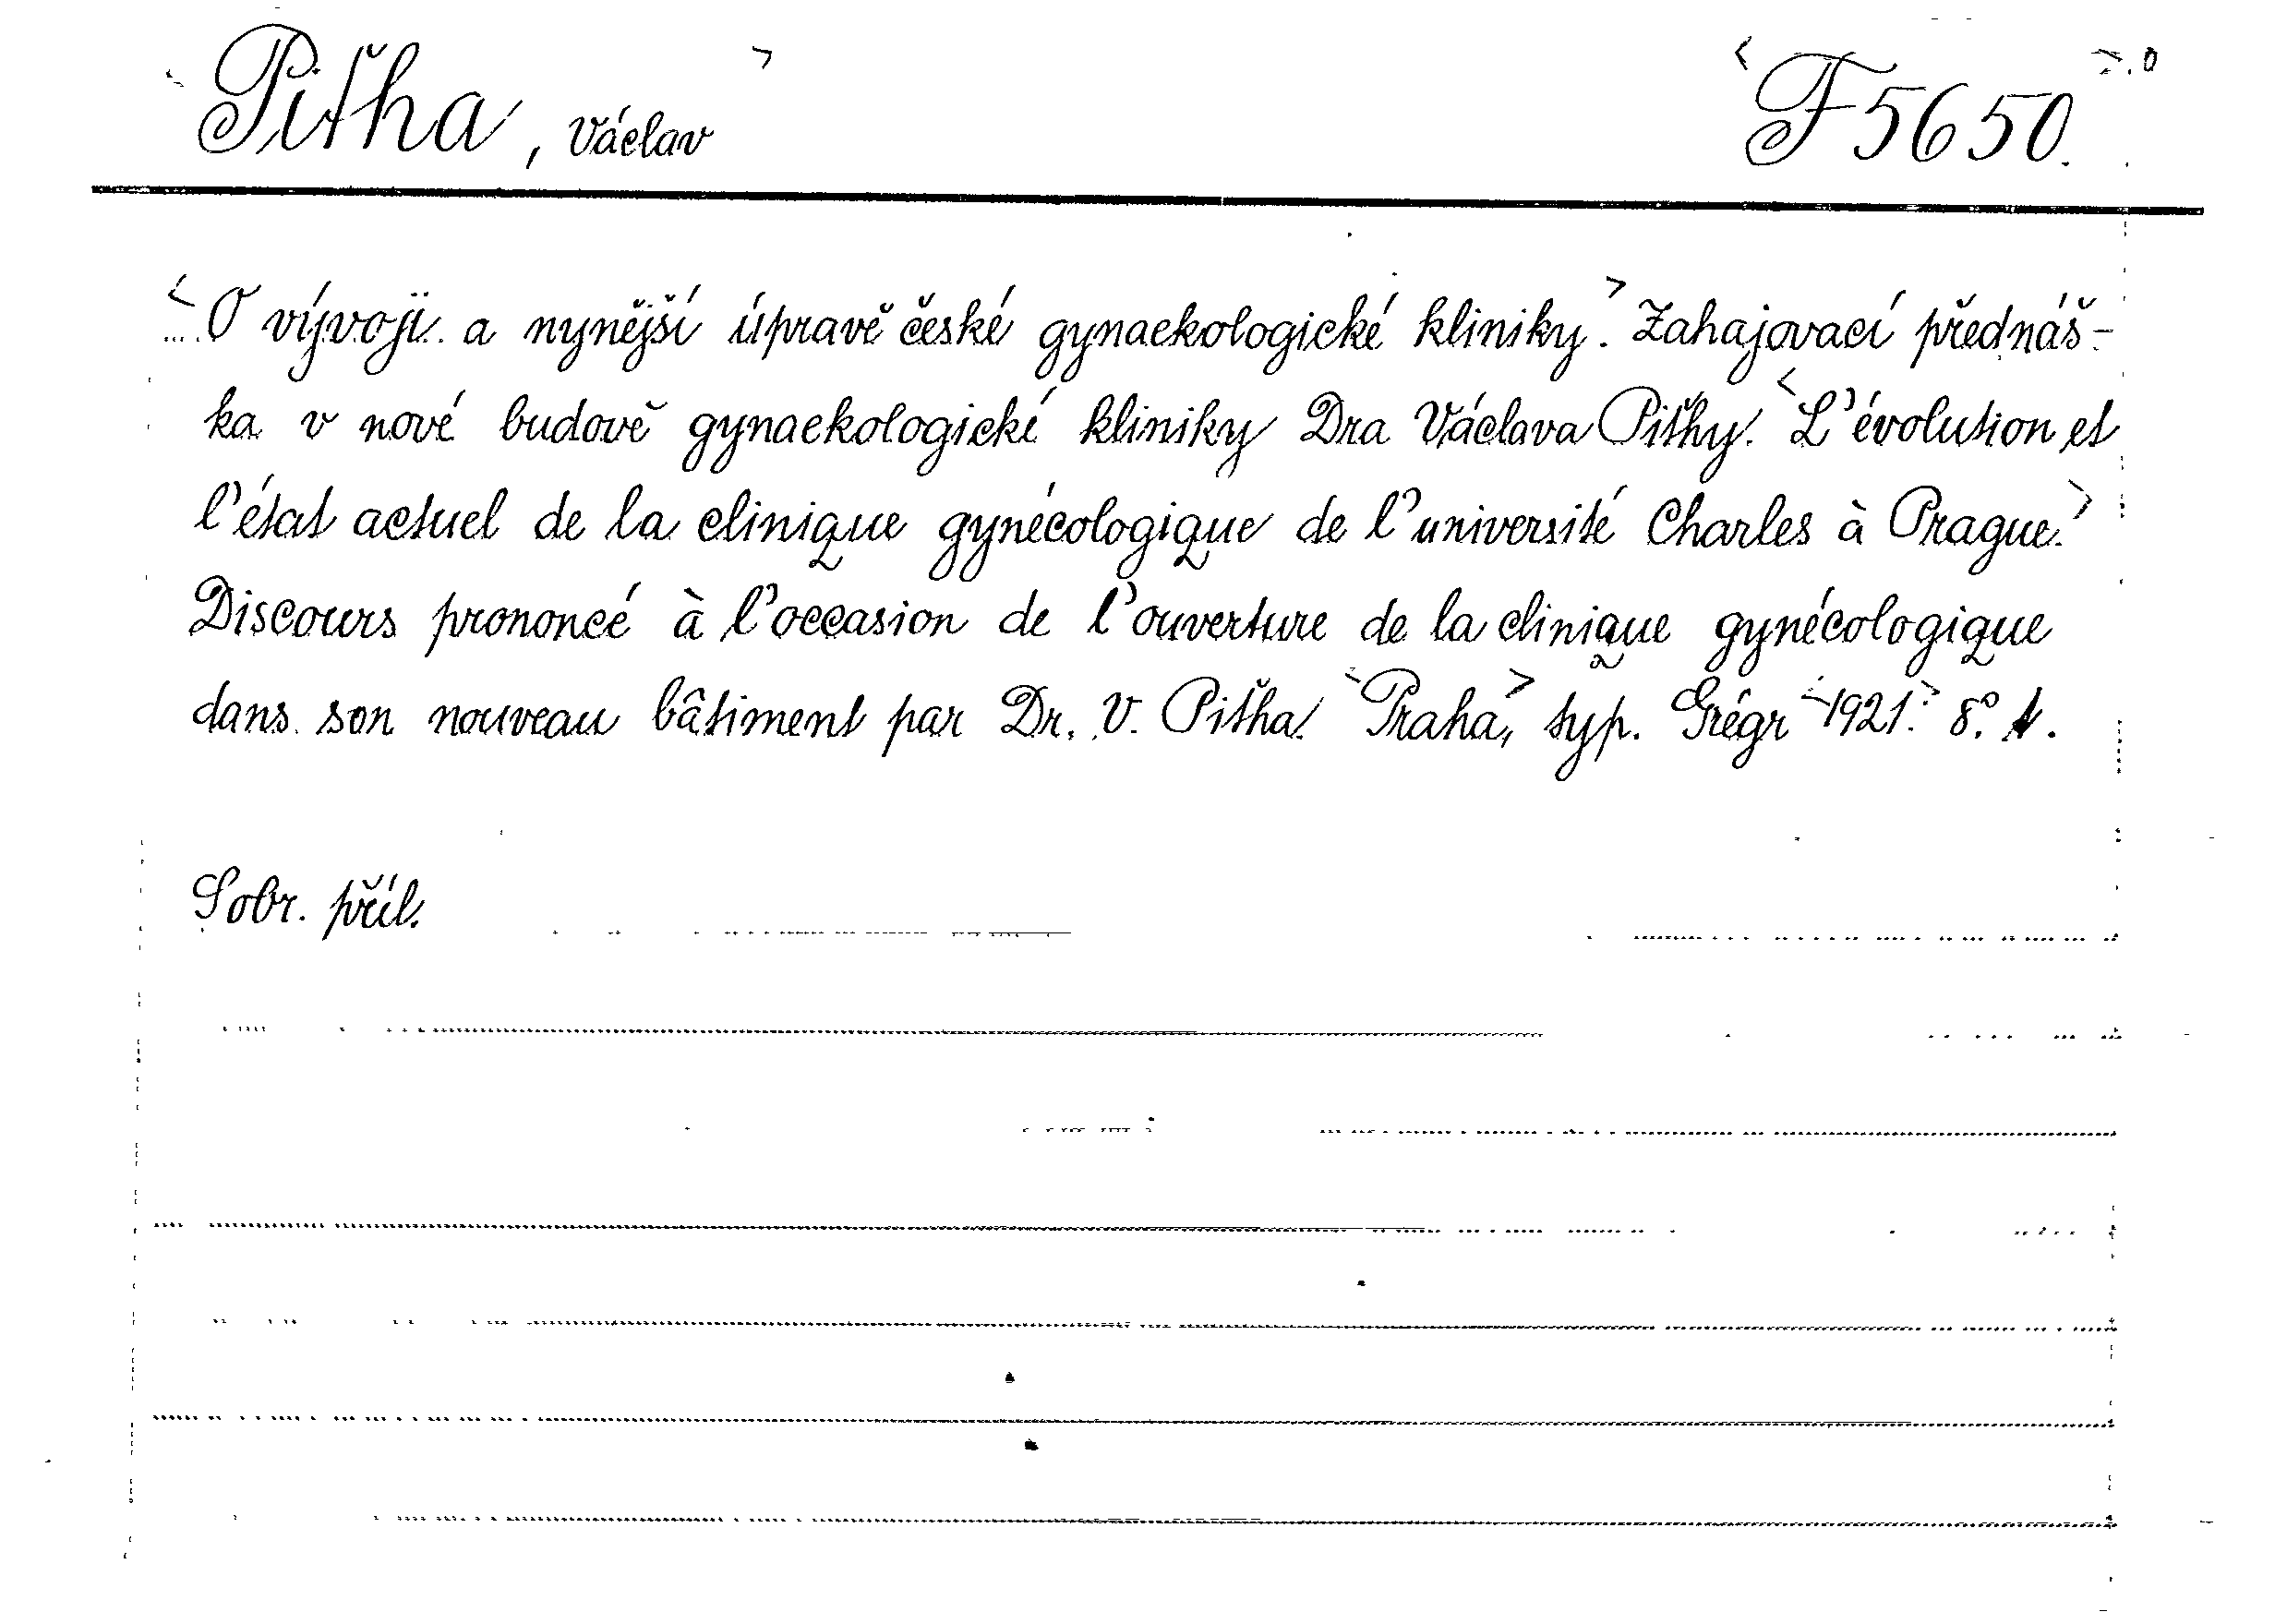 Piťha, Václav F 5650.
O vývoji a nynější úpravě české gynaekologické kliniky. Zahajovací přednáš-
ka v nové budově gynaekologické kliniky Dra Václava Piťhy. L'évolution et
l'état actuel de la clinique gynécologique de l'université Charles à Prague.
Discours prononcé à l'occasion de l'ouverture de la clinique gynécologique
dans son nouveau bâtiment par Dr. V. Piťha. Praha, typ. Grégr 1921. 8°.
S obr. příl.